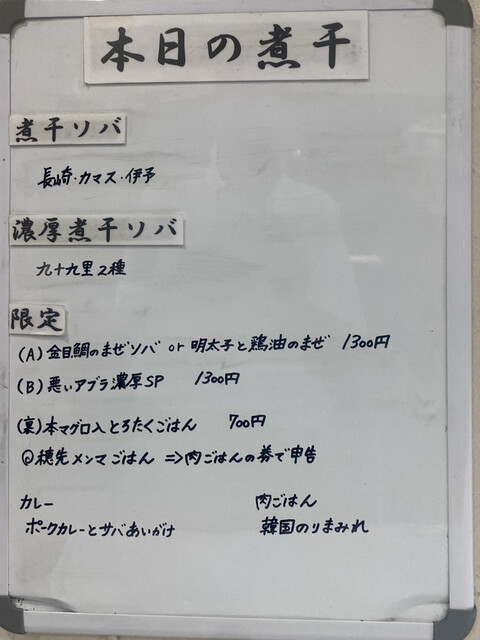 本日の煮干
煮干ソバ
長崎・カマス・伊予
濃厚煮干ソバ
九十九里2種
限定
(A)金目鯛のまぜソバ or 明太子と鶏油のまぜ 1300円
(B)悪いアブラ濃厚SP 1300円
(裏)本マグロ入とろたくごはん 700円
@穂先メンマごはん ⇒肉ごはんの券で申告
カレー 肉ごはん
ポークカレーとサバあいがけ 韓国のりまみれ